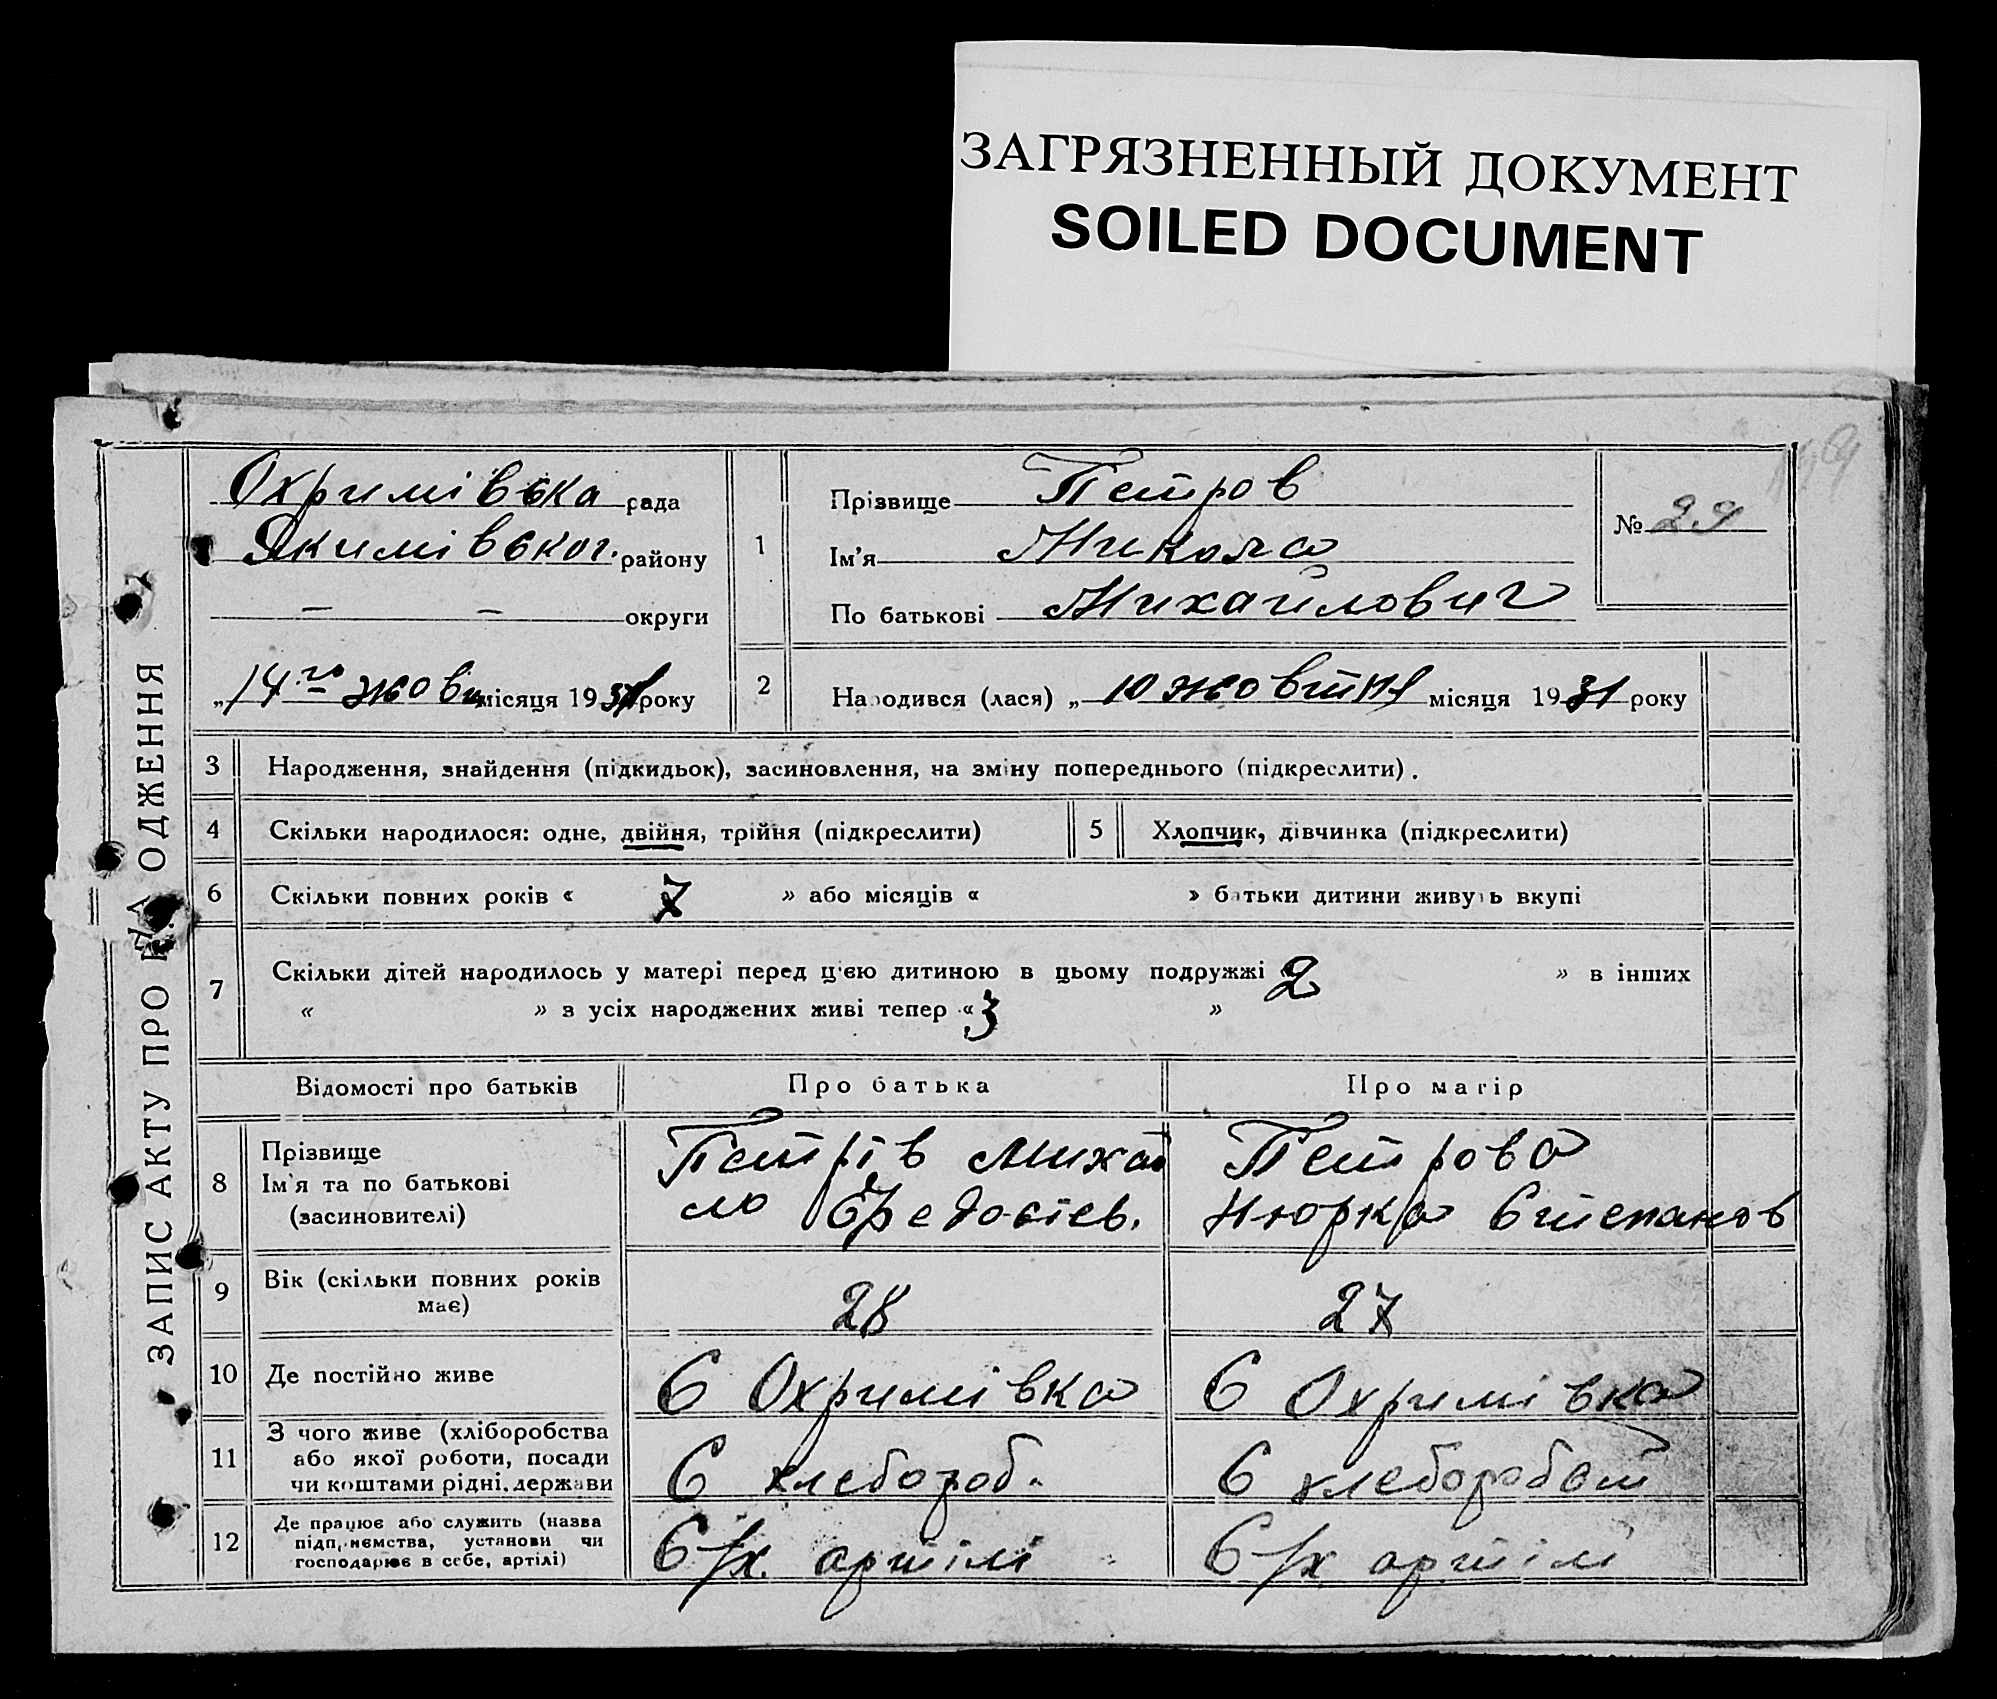 ЗАГРЯЗНЕННЫЙ ДОКУМЕНТ
SOILED DOCUMENT
ЗАПИС АКТУ ПРО НАРОДЖЕННЯ
Охримівська рада
Якимівськог. району
— — округи
„14го жовтн місяця 1931 року
1
Прізвище Петров
Ім'я Микола
По батькові Михайлович
№ 29
2 Народився (лася) „10 жовтня місяця 1931 року
3 Народження, знайдення (підкидьок), засиновлення, на зміну попереднього (підкреслити).
4 Скільки народилося: одне, двійня, трійня (підкреслити) 5 Хлопчик, дівчинка (підкреслити)
6 Скільки повних років « 7 » або місяців « » батьки дитини живуть вкупі
7 Скільки дітей народилось у матері перед цією дитиною в цьому подружжі « 2 » в інших
« » з усіх народжених живі тепер « 3 »
Відомості про батьків Про батька Про матір
8 Прізвище
Ім'я та по батькові
(засиновителі)
Петрів Михай
ло Федосіев.
Петрова
Нюрка Степанов
9 Вік (скільки повних років
має)
28 27
10 Де постійно живе С Охримівка С Охримівка
11 З чого живе (хліборобства
або якої роботи, посади
чи коштами рідні, держави
С хлебороб. С хлеборобст
12 Де працює або служить (назва
підприємства, установи чи
господарює в себе, артілі)
С/х. артілі С/х артілі